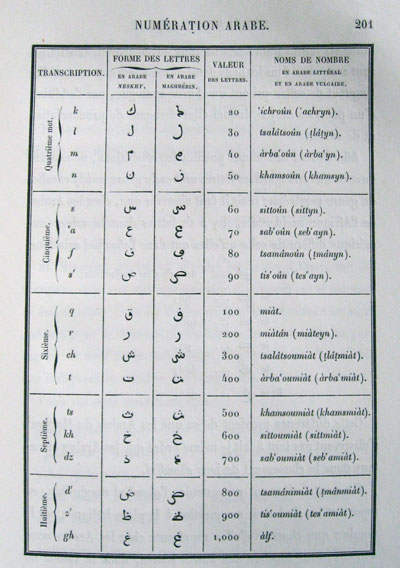 NUMÉRATION ARABE. 201
TRANSCRIPTION. FORME DES LETTRES VALEUR DES LETTRES. NOMS DE NOMBRE
EN ARABE NESKHY. EN ARABE MAGHRÉBIN. EN ARABE LITTÉRAL ET EN ARABE VULGAIRE.
Quatrième mot.
k ك ك 20 'ichroûn ('achryn).
l ل ل 30 tsalâtsoûn (ṭlâṭyn).
m م م 40 àrba'oûn (àrba'yn).
n ن ن 50 khamsoûn (khamsyn).
Cinquième.
s س س 60 sittoûn (sittyn).
'a ع ع 70 sab'oûn (seb'ayn).
f ف ڢ 80 tsamânoûn (ṭmányn).
s' ص ص 90 tis'oûn (tes'ayn).
Sixième.
q ق ق 100 miàt.
r ر ر 200 miàtân (miàteyn).
ch ش ش 300 tsalâtsoumiàt (ṭlâṭmiàt).
t ت ت 400 àrba'oumiàt (àrba'miàt).
Septième.
ts ث ث 500 khamsoumiàt (khamsmiàt).
kh خ خ 600 sittoumiàt (sittmiàt).
dz ذ ذ 700 sab'oumiàt (seb'amiàt).
Huitième.
d' ض ض 800 tsamânimiàt (ṭmânmiàt).
z' ظ ظ 900 tis'oumiàt (tes'amiàt).
gh غ غ 1,000 àlf.